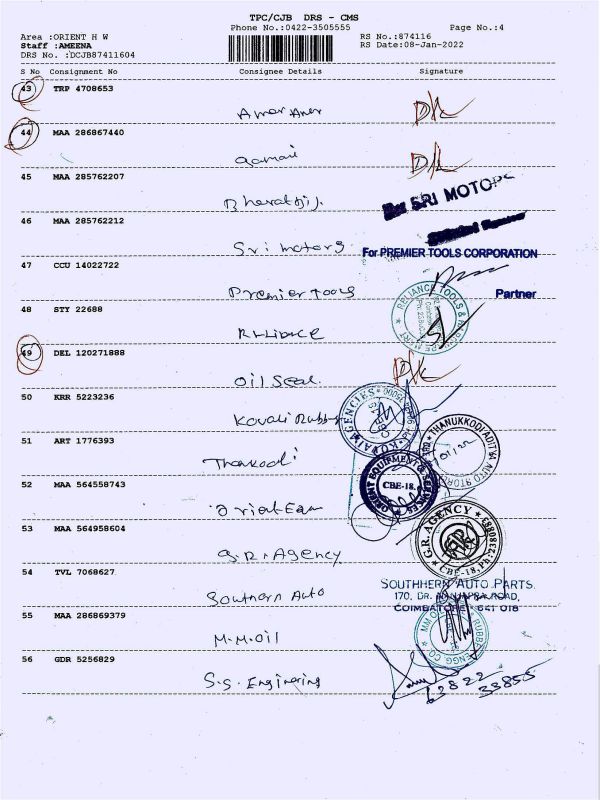 TPC/CJB DRS - CMS
Phone No.:0422-3505555
Page No.:4
Area :ORIENT H W
RS No.:874116
Staff :AMEENA
RS Date:08-Jan-2022
DRS No. :DCJB87411604
S No Consignment No Consignee Details Signature
43 TRP 4708653
44 MAA 286867440
45 MAA 285762207
SRI MOTORS
46 MAA 285762212
Sri motors
For PREMIER TOOLS CORPORATION
47 CCU 14022722
Premier tools
Partner
48 STY 22688
RELIANCE TOOLS &
49 DEL 120271888
Oil Seal
50 KRR 5223236
KOVAI AGENCIES
51 ART 1776393
THANUKKODI ADITYA AUTO STORES
52 MAA 564558743
ORIENT EQUIPMENT & SERVICES
CBE-18.
53 MAA 564958604
G.R. Agency
G.R. AGENCY
54 TVL 7068627
Southern Auto
SOUTHHERN AUTO PARTS.
COIMBATORE - 641 018
55 MAA 286869379
M.M.Oil
56 GDR 5256829
S.S. Enginering
63822
33855